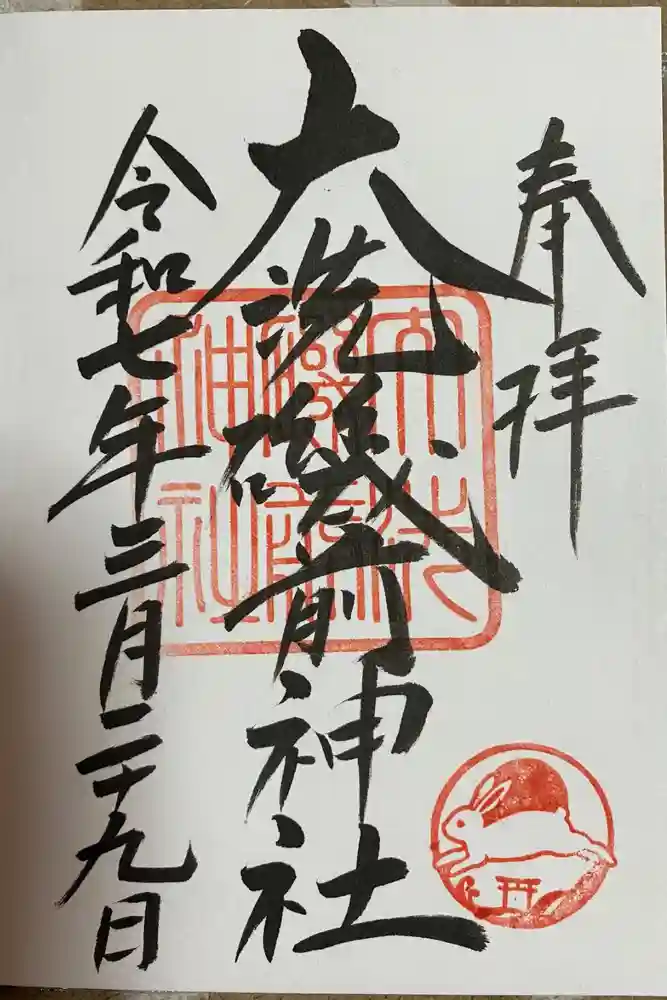 奉拝
大洗磯前神社
令和七年三月二十九日
大洗
磯前
神社